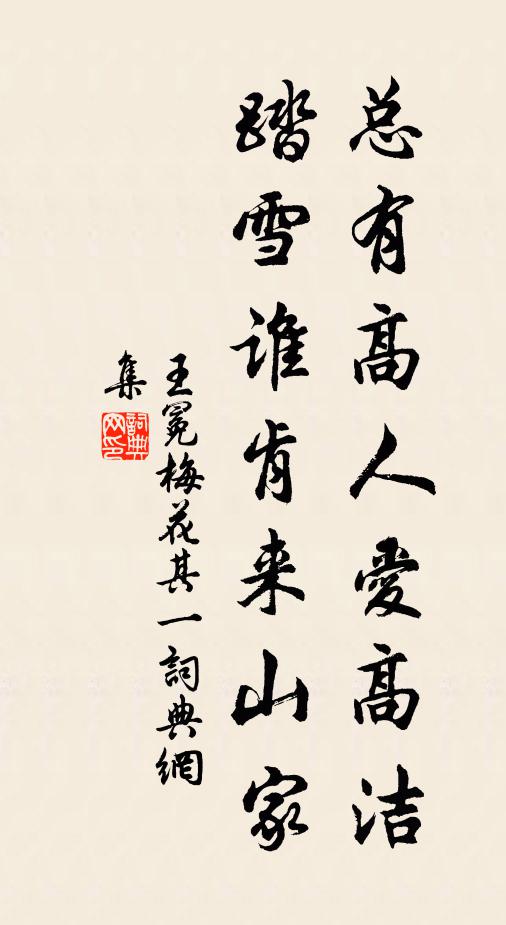 总有高人愛高洁
踏雪谁肯来山家
王冕梅花其一詞典網
集
詞典
网印